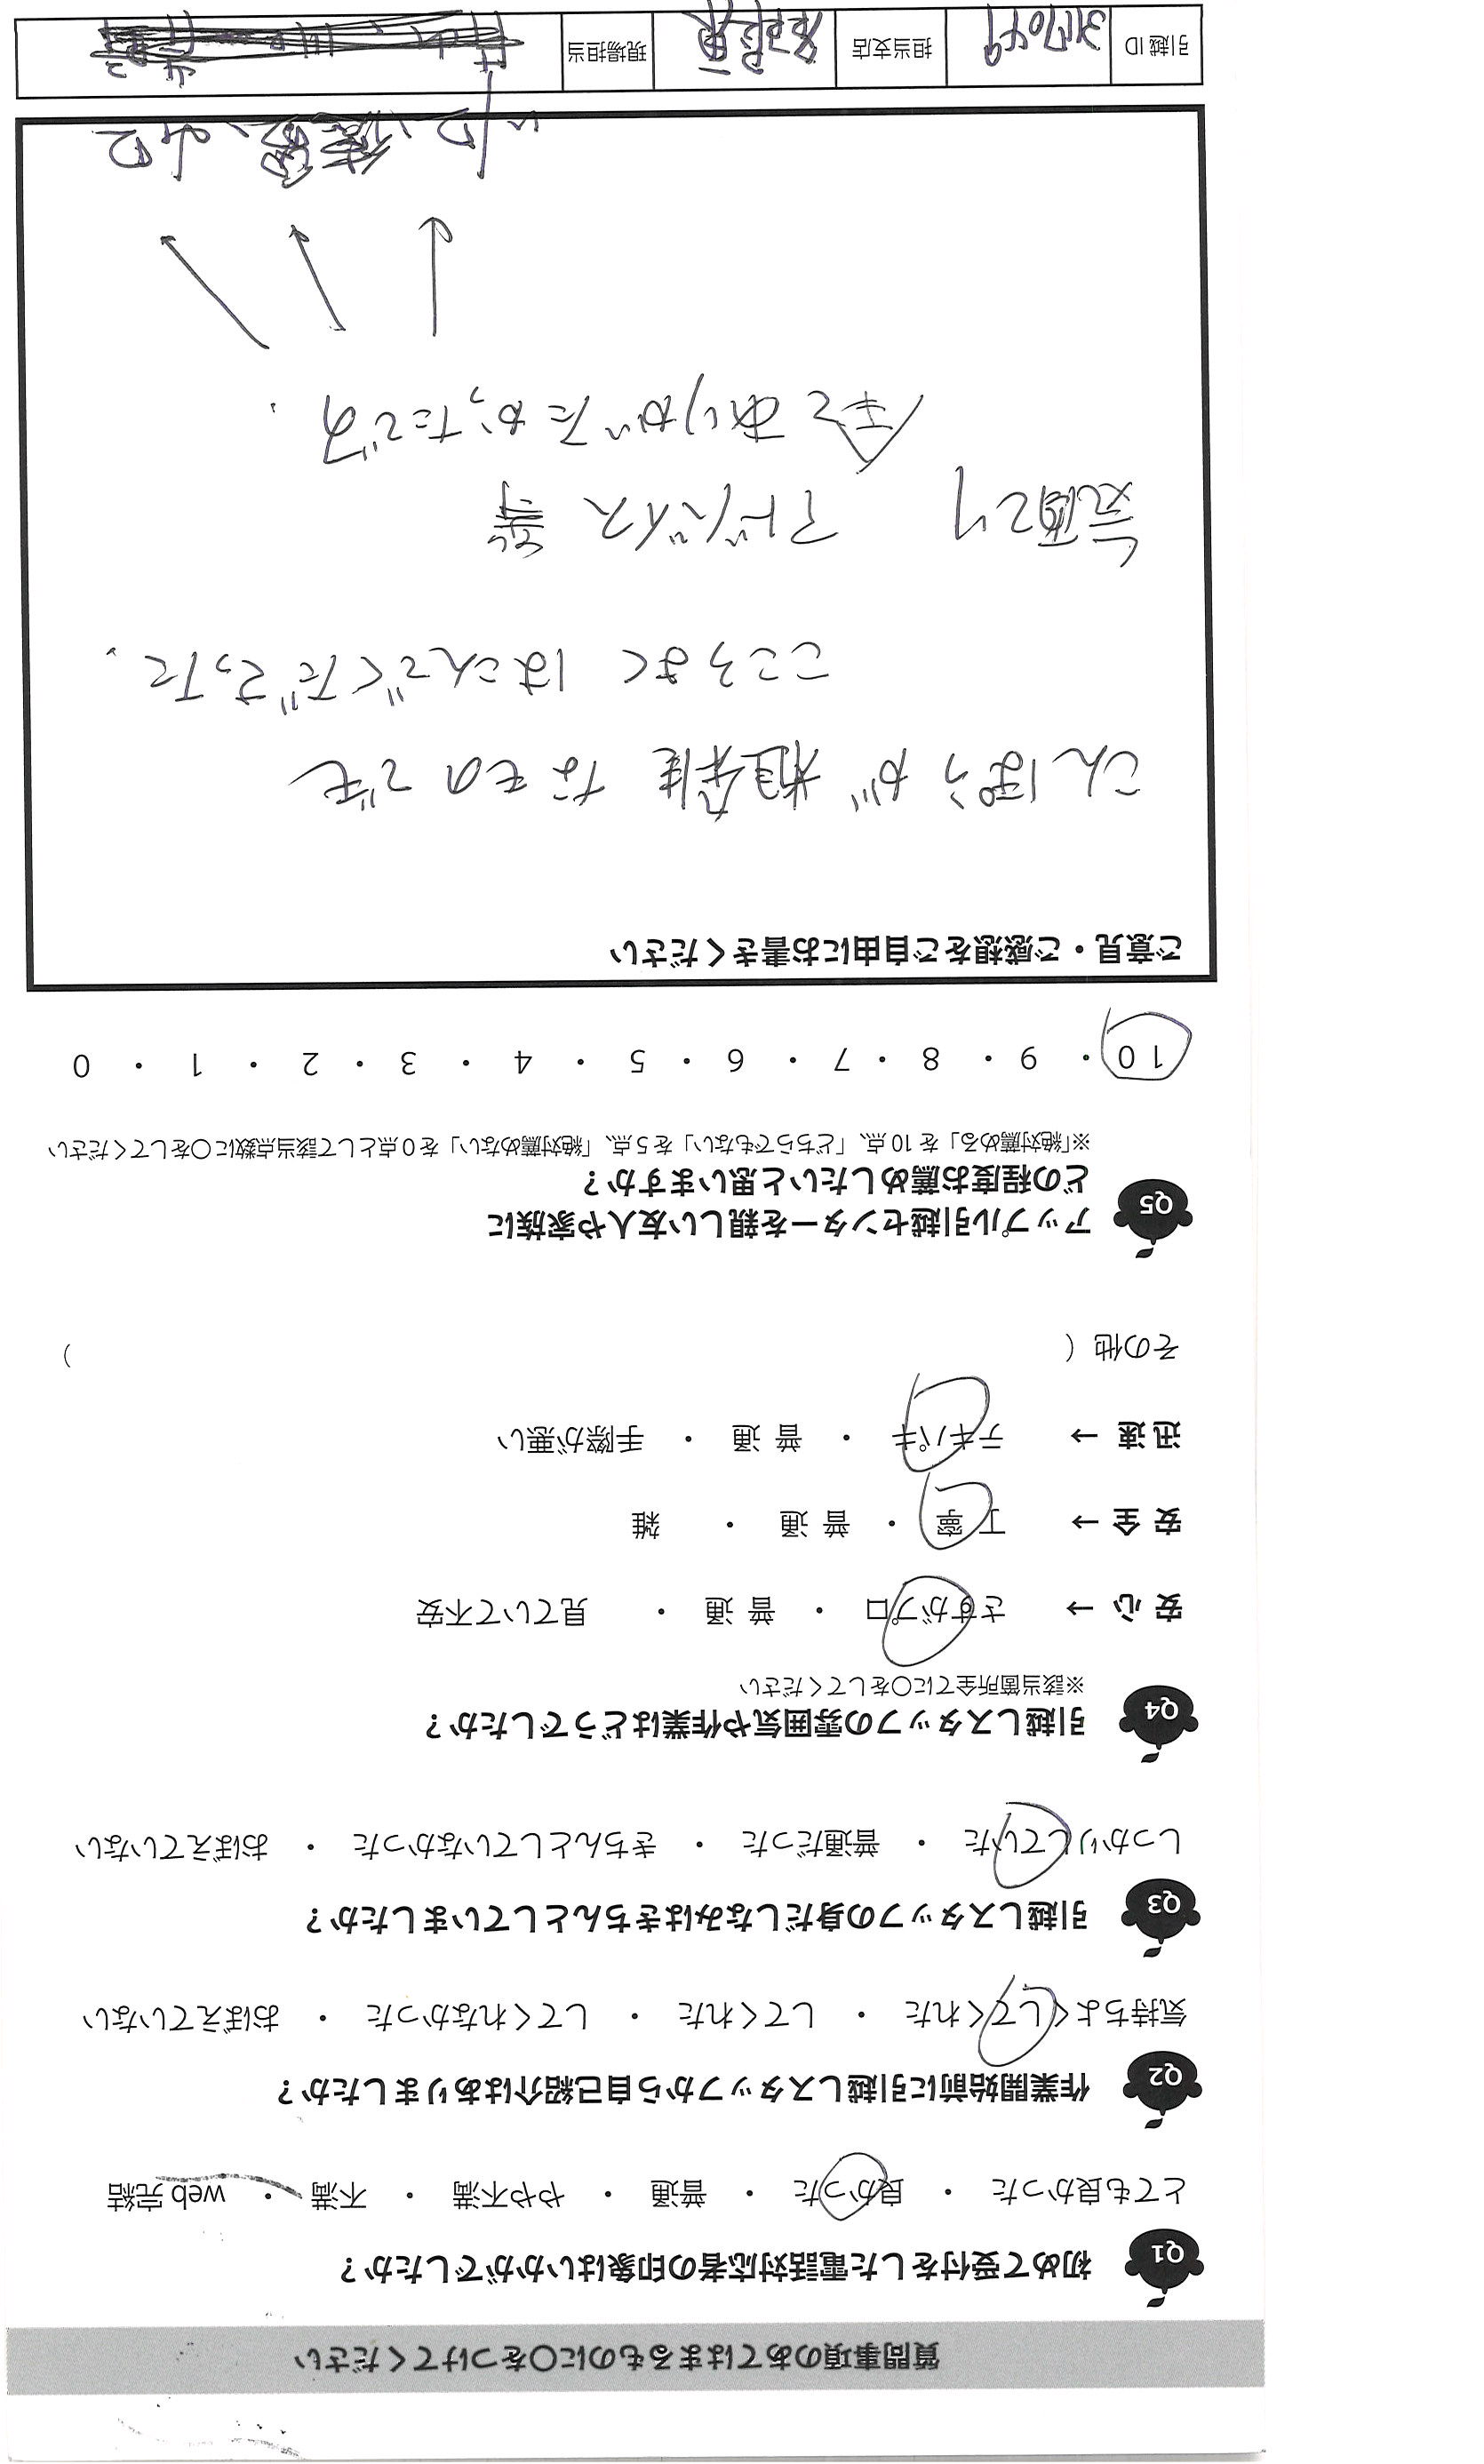 質問事項のあてはまるものに○をつけてください
Q1 初めて受付をした電話対応者の印象はいかがでしたか?
とても良かった ・ 良かった ・ 普通 ・ やや不満 ・ 不満 ・ web 完結
Q2 作業開始前に引越しスタッフから自己紹介はありましたか?
気持ちよくしてくれた ・ してくれた ・ してくれなかった ・ おぼえていない
Q3 引越しスタッフの身だしなみはきちんとしていましたか?
しっかりしていた ・ 普通だった ・ きちんとしていなかった ・ おぼえていない
Q4 引越しスタッフの雰囲気や作業はどうでしたか?
※該当箇所全てに○をしてください
安心 → さすがプロ ・ 普通 ・ 見ていて不安
安全 → 丁寧 ・ 普通 ・ 雑
迅速 → テキパキ ・ 普通 ・ 手際が悪い
その他 ( )
Q5 アップル引越センターを親しい友人や家族に
どの程度お薦めしたいと思いますか?
※「絶対薦める」を10点、「どちらでもない」を5点、「絶対薦めない」を0点として該当点数に○をしてください
10 ・ 9 ・ 8 ・ 7 ・ 6 ・ 5 ・ 4 ・ 3 ・ 2 ・ 1 ・ 0
ご意見・ご感想をご自由にお書きください
こんぽうが 粗雑 なものでも
こころよく はこんでくださった.
アドバイス 等
全て ありがたかったです.
引越ID 317049 担当支店 現場担当